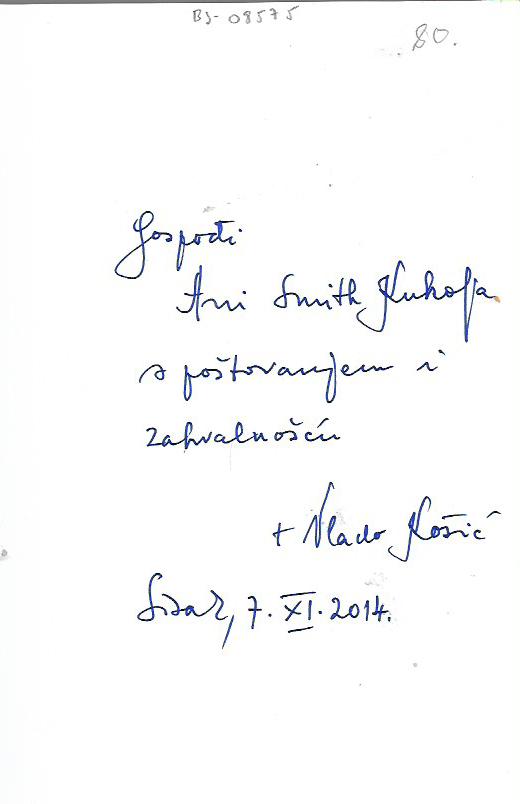 BJ-08575
80.
Gospođi
Ani Smith Kukolja
s poštovanjem i
zahvalnošću
+ Vlado Košić
Sisak, 7. XI. 2014.